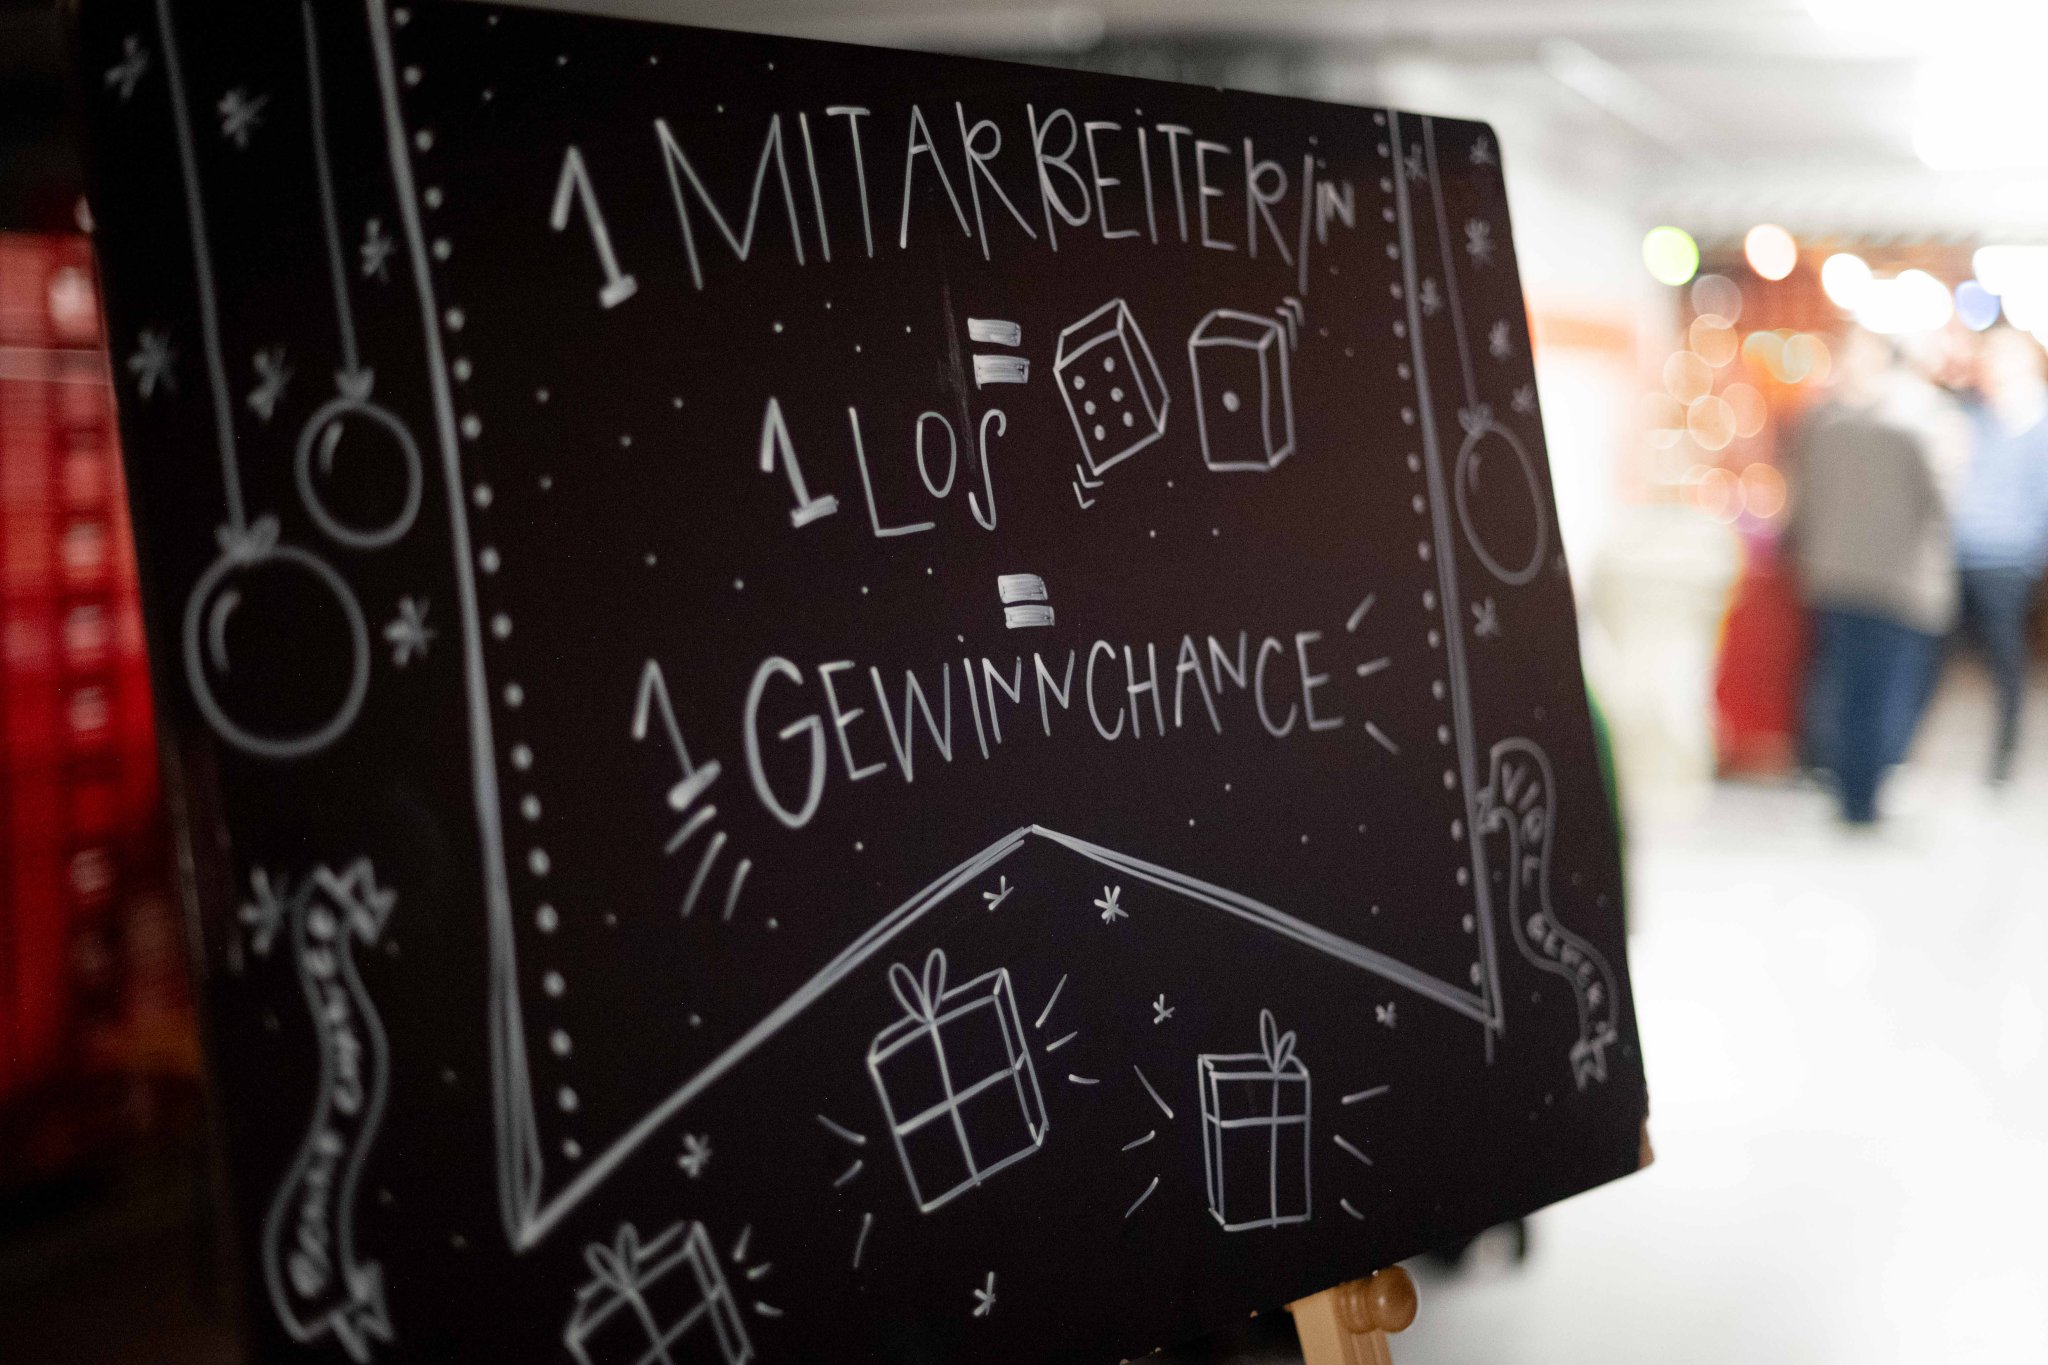 1 MITARBEITER/iN
=
1 LOS
=
1 GEWiNNCHANCE
VIEL